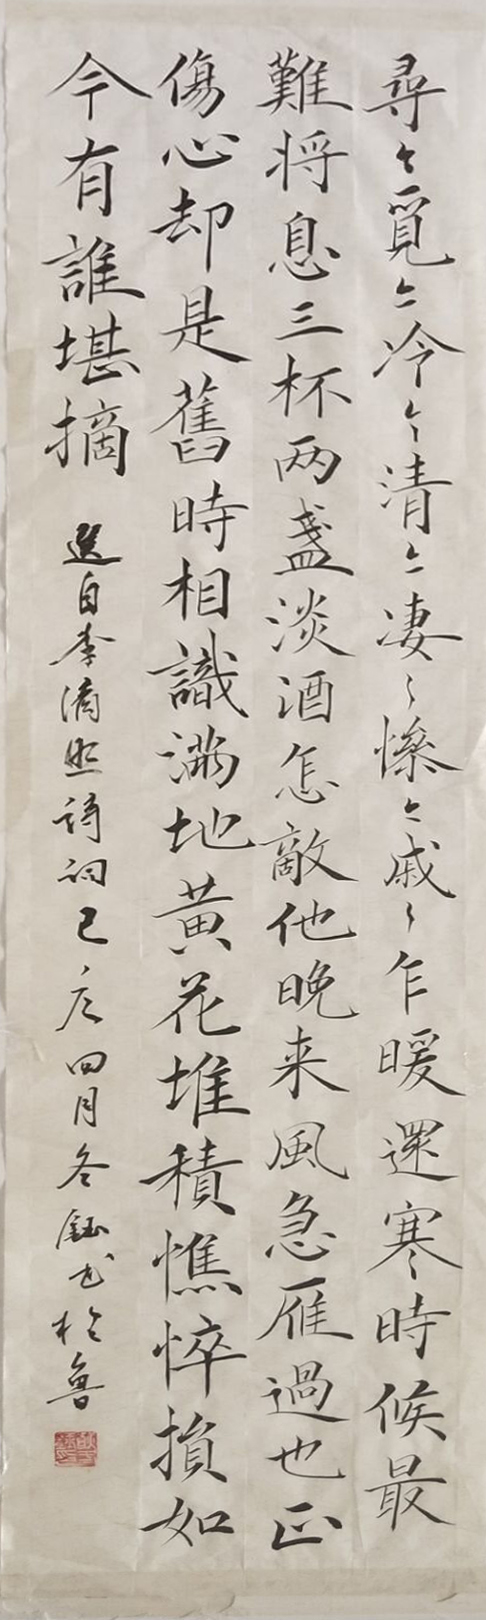 尋々覓々冷々清々凄々慘々戚々乍暖還寒時候最
難将息三杯两盏淡酒怎敵他晚来風急雁過也正
傷心却是舊時相識满地黄花堆積憔悴損如
今有誰堪摘
選自李清照詩詞己亥四月冬鈺书於魯